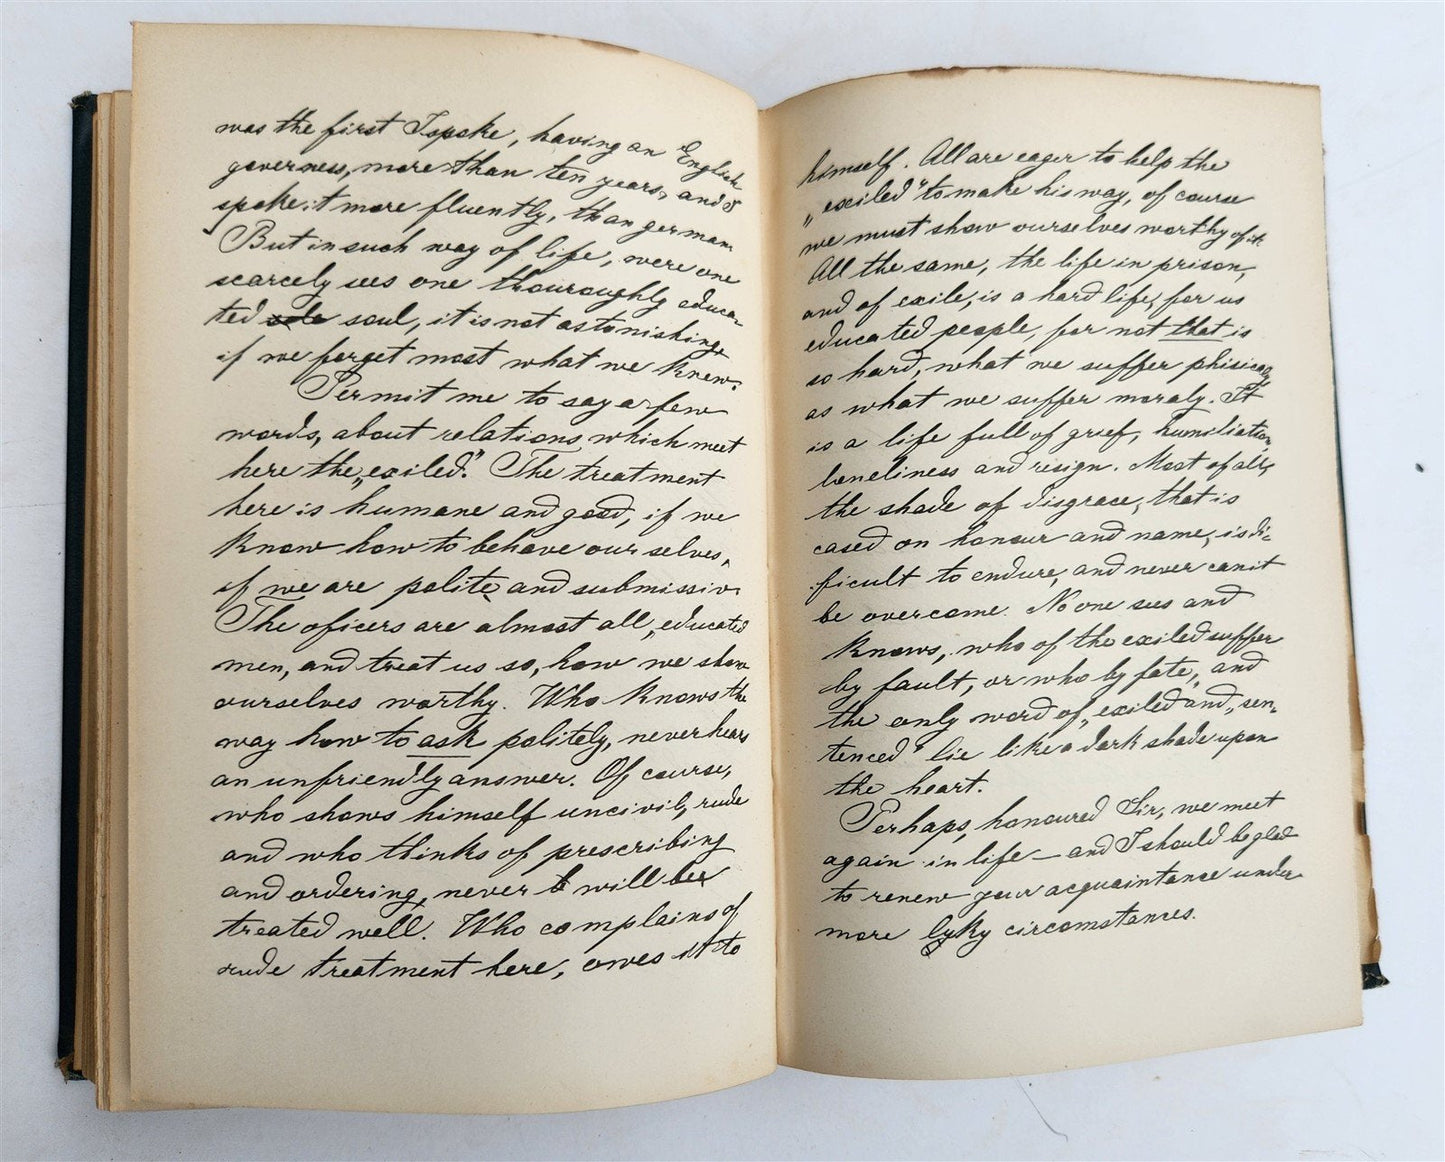 was the first I spoke, having an English
governess, more than ten years, and I
spoke it more fluently, than german
But in such way of life, were one
scarcely sees one thouroughly educa-
ted soul, it is not astonishing,
if we forget most what we knew.
Permit me to say a few
words, about relations which meet
here the „exiled." The treatment
here is humane and good, if we
know how to behave our selves,
if we are polite and submissiv.
The oficers are almost all, educated
men, and treat us so, how we show
ourselves worthy. Who knows the
way how to ask politely, never hears
an unfriendly answer. Of course,
who shows himself uncivil, rude
and who thinks of prescribing
and ordering, never will be
treated well. Who complains of
rude treatment here, owes it to
himself. All are eager to help the
„exiled" to make his way, of course
we must show ourselves worthy of it.
All the same, the life in prison,
and of exile, is a hard life, for us
educated people, for not that is
so hard, what we suffer phisicaly
as what we suffer moraly. It
is a life full of grief, humiliation,
loneliness and resign. Most of all,
the shade of disgrace, that is
cased on honour and name, is di-
ficult to endure, and never can it
be overcome. No one sees and
knows, who of the exiled suffer
by fault, or who by fate, and
the only word of „exiled" and „sen-
tenced" lie like a dark shade upon
the heart.
Perhaps, honoured Sir, we meet
again in life — and I should be glad
to renew your acquaintance under
more lyky circomstances.